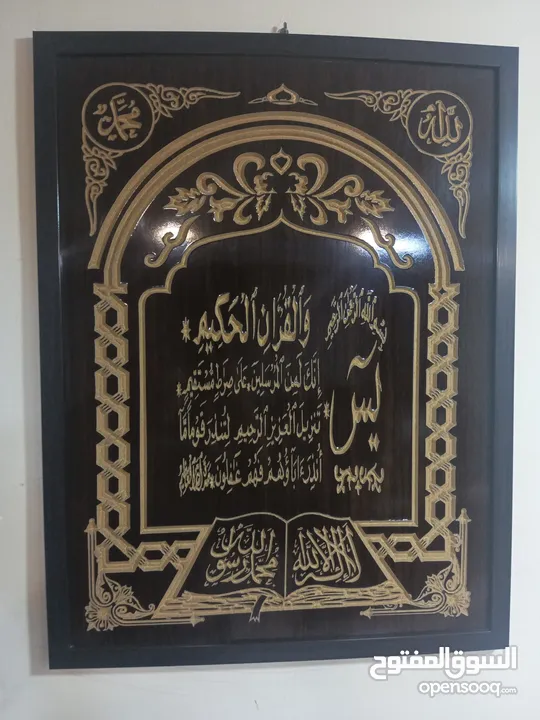 الله
محمد
بسم الله الرحمن الرحيم
يس
وَٱلْقُرْآنِ ٱلْحَكِيمِ
إِنَّكَ لَمِنَ ٱلْمُرْسَلِينَ عَلَىٰ صِرَٰطٍ مُّسْتَقِيمٍ
تَنزِيلَ ٱلْعَزِيزِ ٱلرَّحِيمِ لِتُنذِرَ قَوْمًا مَّا
أُنذِرَ ءَابَآؤُهُمْ فَهُمْ غَٰفِلُونَ
لا إله إلا الله
محمد رسول الله
السوق المفتوح
opensooq.com